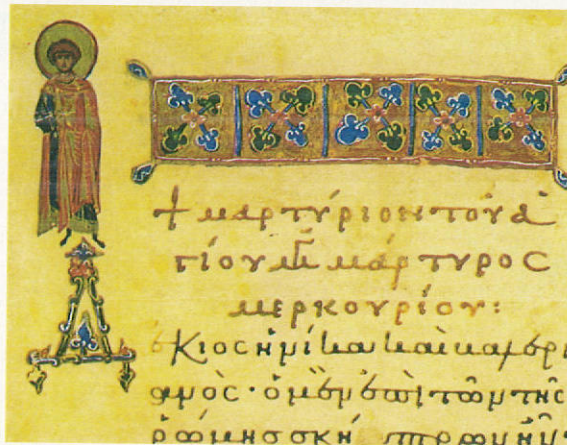 + μαρτύριον τοῦ ἁ
γίου μ μάρτυρος
μερκουρίου:
έκιος ἡνίκα καὶ
ανὸς· ὁ μὲν τῶν τῆς
ῥώμης σκήπτρων